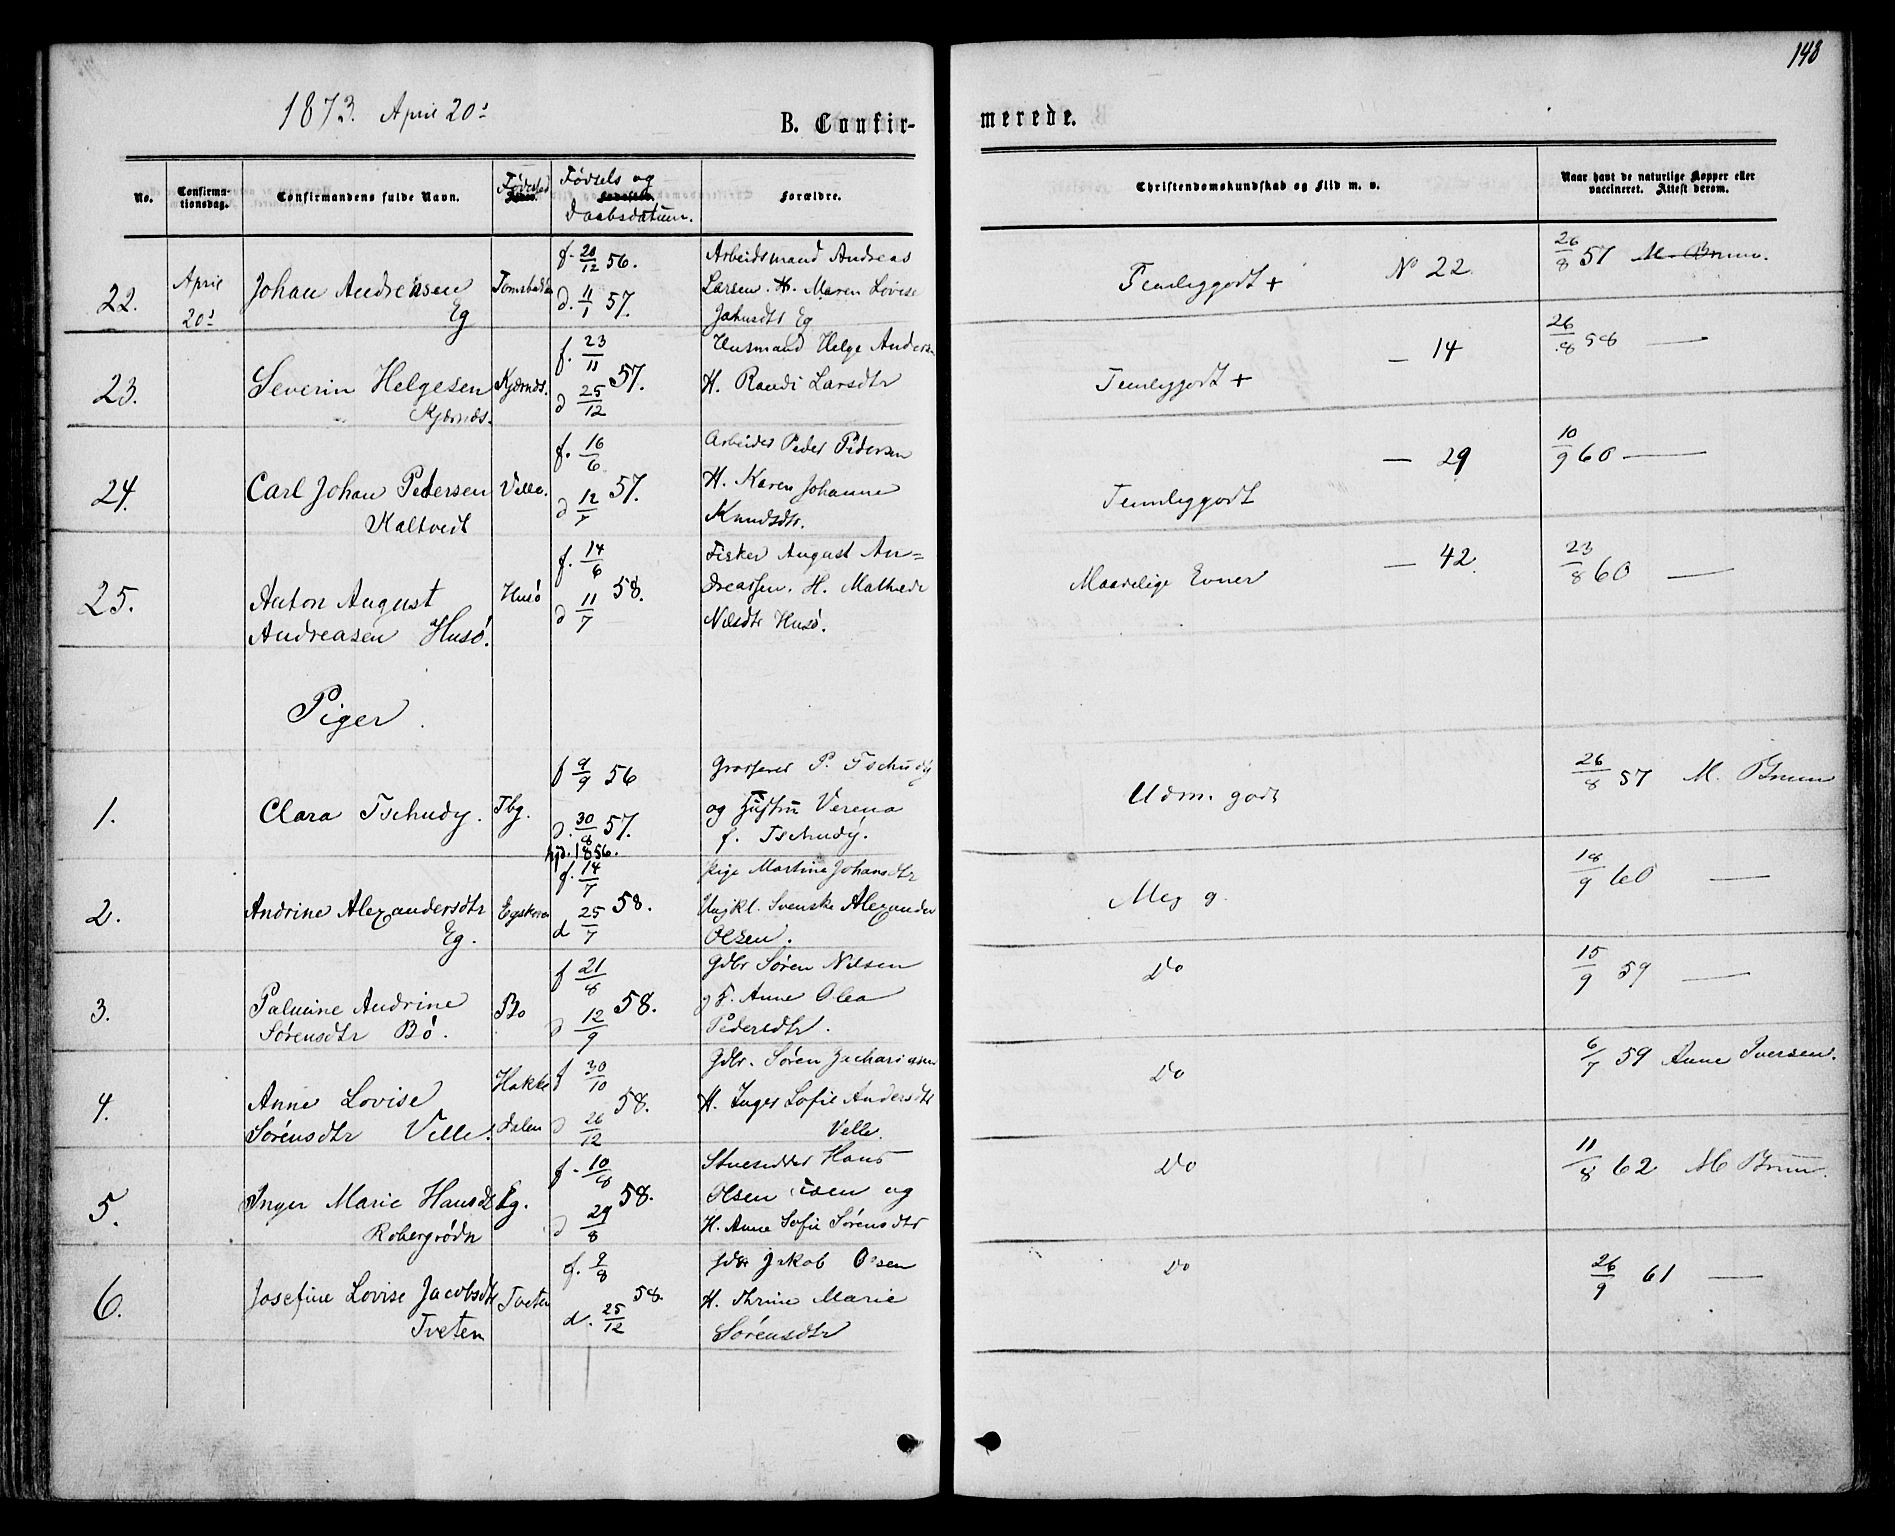 148
1873. April 20:
B. Confir-
merede.
No.
Confirma-
tionsdag.
Confirmandens fulde Navn.
Fødested
Fødsels og
Daabsdatum.
Forældre.
Christendomskundskab og Flid m. v.
Naar havt de naturlige Kopper eller
vaccineret. Attest derom.
22.
April
20:
Johan Andreasen
Eg
f. 20/12 56.
d. 11/1 57.
Arbeidsmand Andreas
Larsen. H. Maren Lovise
Eg
Temliggodt +
No 22.
26/8 57 M. Bruun.
23.
Severin Helgesen
Kjærnæs.
Kjærnæs.
f. 23/11
57.
d 25/12
Husmand Helge Anders
H. Randi Larsdtr
Temliggodt +
— 14
26/8 58 —
24.
Carl Johan Pedersen
Kaltvedt
Velle.
f. 16/6
57.
d 12/7
Arbeider Peder Pedersen
H. Karen Johanne
Knudsdtr.
Temliggodt
— 29
10/9 60 —
25.
Anton August
Andreasen Husø.
Husø
f. 14/6
58.
d 11/7
Fisker August An=
dreassen. H. Mathede
Nilsdtr Husø.
Maadelige Evner
— 42.
23/8 60 —
Piger.
1.
Clara Tschudy.
Tbg.
f 9/9 56
d. 30/8 57.
hjd. 1856.
Grosserer P. Tschudy
og Hustru Verena
f. Tschudy.
Udm. godt
26/8 57 M. Bruun
2.
Andrine Alexandersdtr
Eg.
Egskoven
f. 14/7
58.
d 25/7
Pige Martine Johansdtr
Ungkl. Svenske Alexander
Olsen.
Meg g.
18/9 60 —
3.
Palmine Andrine
Sørensdtr Bø.
Bø
f 21/8
58.
d 12/9
Gdbr Søren Nilsen
g F. Anne Olea
Pedersdtr.
Do
15/9 59 —
4.
Anne Lovise
Sørensdtr Velle.
Hakke
dalen
f 30/10
58.
d 26/12
Gdbr. Søren Zachariasen
H. Inger Sofie Andersdtr
Velle.
Do
6/7 59 Anne Iversen.
5.
Inger Marie Hansdt
Robergrødn
Eg.
f. 10/8
58.
d 29/8
Stuesidder Hans
Olsen og
H. Anne Sofie Sørensdtr
Do
11/8 62 M Bruun.
6.
Josefine Lovise Jacobsdtr
Tveten
Tveten
f. 9/8
58.
d. 25/12
Gdbr Jakob Olsen
H. Thrine Marie
Sørensdtr
Do
26/9 61 —